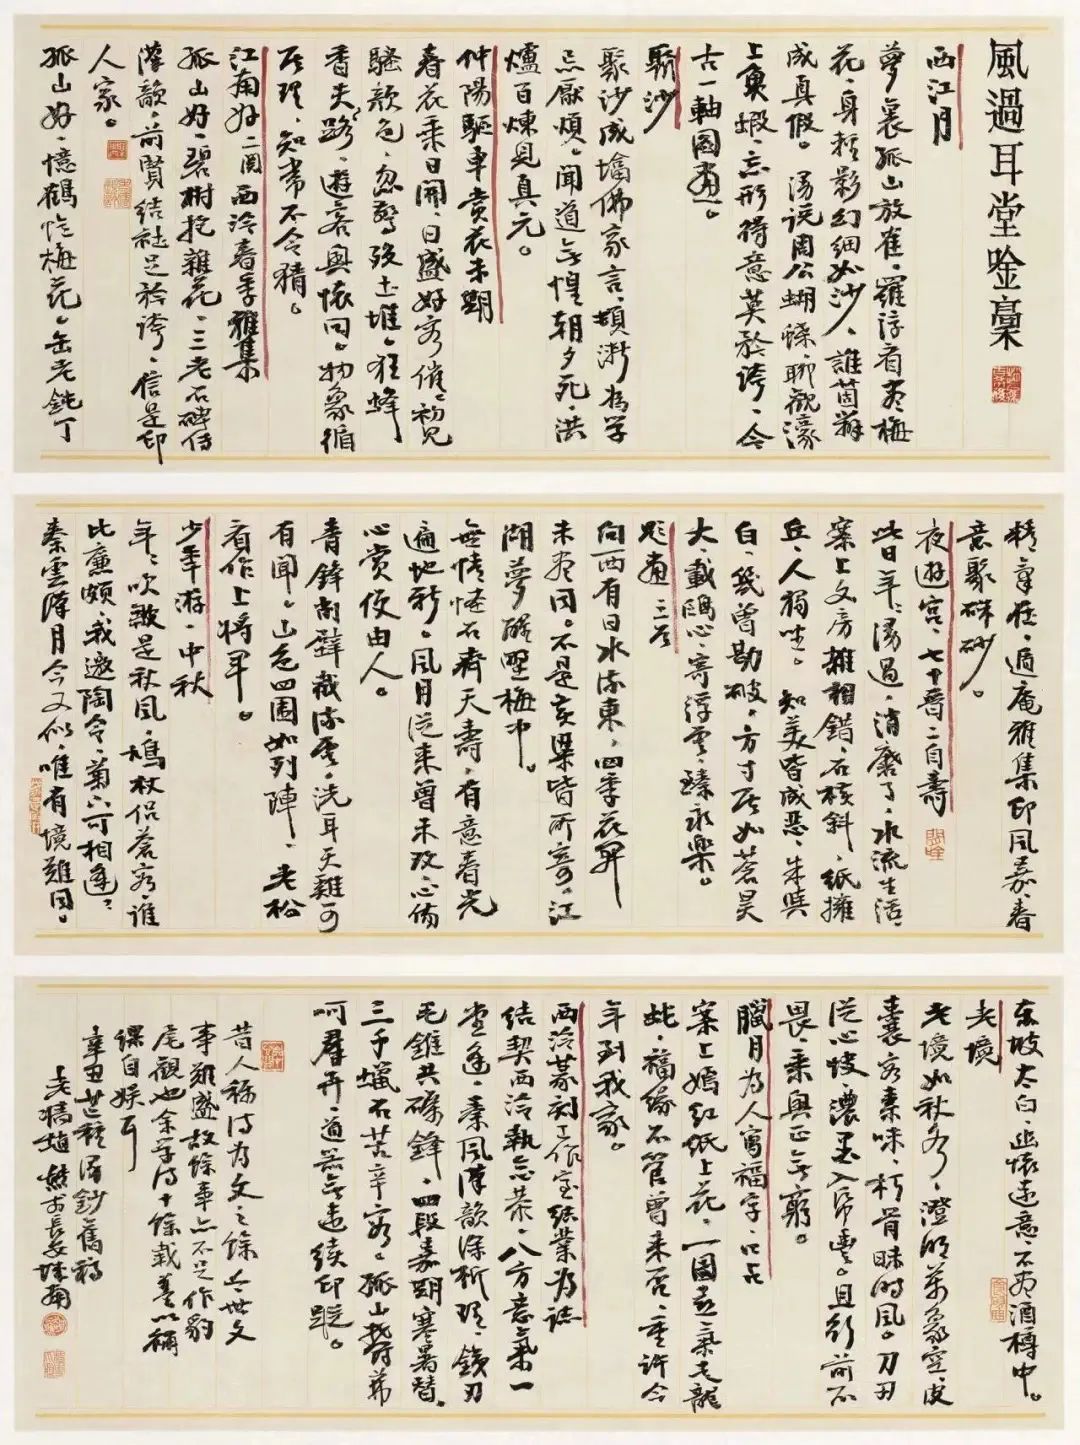 風過耳堂唫稾
西江月
夢裏孤山放雀羅浮看盡梅
花身赬影幻細如沙誰箇辨
成真假 湯説周公蝴蝶聊觀濠
上魚蝦忘形得意莫於誇今
古一軸圖畫
聚沙
聚沙成墖佛家言頓漸為學
忌厭煩聞道無惶朝夕死洪
爐百煉見真元
仲陽驅車賞花未期
春花乘日開日盛好客催初見
騷歎色忽驚殘土堆狂蜂
香失路遊客興懷回物象循
至理知常不令猜
江南好二闋西泠春季雅集
孤山好碧樹抱雜花三老石碑傳
漢韻前賢結社足於誇信是印
人家
孤山好憶鶴恍梅花缶老鈍丁
精宰在遁庵雅集印風嘉春
意聚硃砂
夜遊宮七十晉二自壽
此日年年湯過消磨了水流生活
案上文房攤相錯石核斜紙擁
丘人獨坐 知美皆成惡朱與
白幾曾勘破方寸至如蒼昊
大載鷗心寄浮雲臻永樂
題畫三首
向西有日水流東四季花開
未盡同不是黃粱皆所寄江
湖夢醒墅梅中
無情怪石齊天壽有意春光
遍地新風月從來曾未改心傷
心賞便由人
青鋒削壁截流雲洗耳天難可
有聞山色四圍如列陣老松
看作上將軍
少年游中秋
年年吹皺是秋風鳩杖侶蒼客誰
比廉頗我邀陶令菊六可相逢
秦雲漢月今又似唯有境難同
東坡太白幽懷遠意不盡酒樽中
老境
老境如秋分澄明萬象空皮
囊容棗味朽骨昧時風刀丑
從心快濃墨入帋豐且行前不
畏乘興正無窮
臘月為人寫福字口占
案上嫣紅紙上花一團喜氣走龍
蛇福緣不管曾來否重許今
年到我家
西泠篆刻工作室結業為誌
結契西泠執念恭八方意氣一
堂逢秦風漢韻深析理鐵刃
毛錐共礪鋒四段嘉期寒暑替
三千蠟石苦辛容孤山揖別第
呵群開道前無遠續印蹤
昔人稱詩為文之餘今世文
事難盛故餘事亦不足作豹
尾觀也余學詩十餘載善以補
課自娛耳
辛丑芒種滑鈔舊稿
老犢趙熊於長安城南